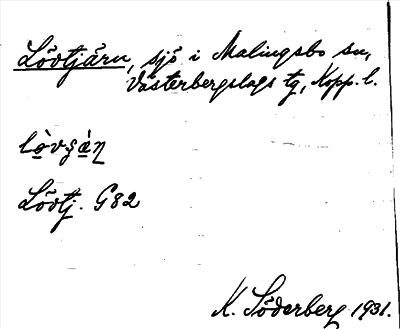 Lövtjärn, sjö i Malingsbo sn,
Västerbergslags tg, Kopp. l.
lò̱vʂà̱ƞ
Lövtj. G82
K. Söderberg 1931.